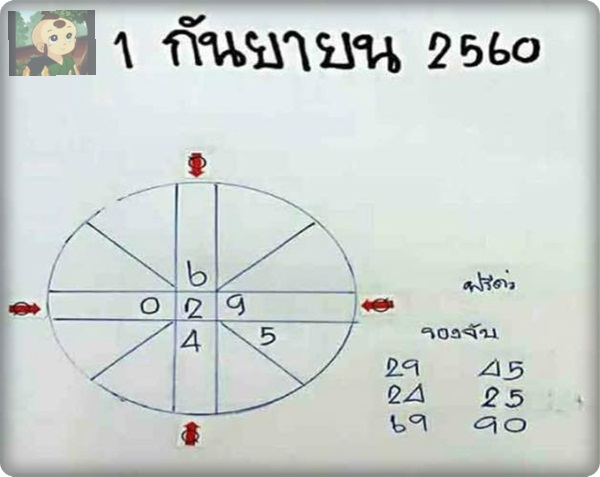 1 กันยายน 2560
6
0 2 9
4 5
ฟรีค่ะ
จองจับ
29 45
24 25
69 90